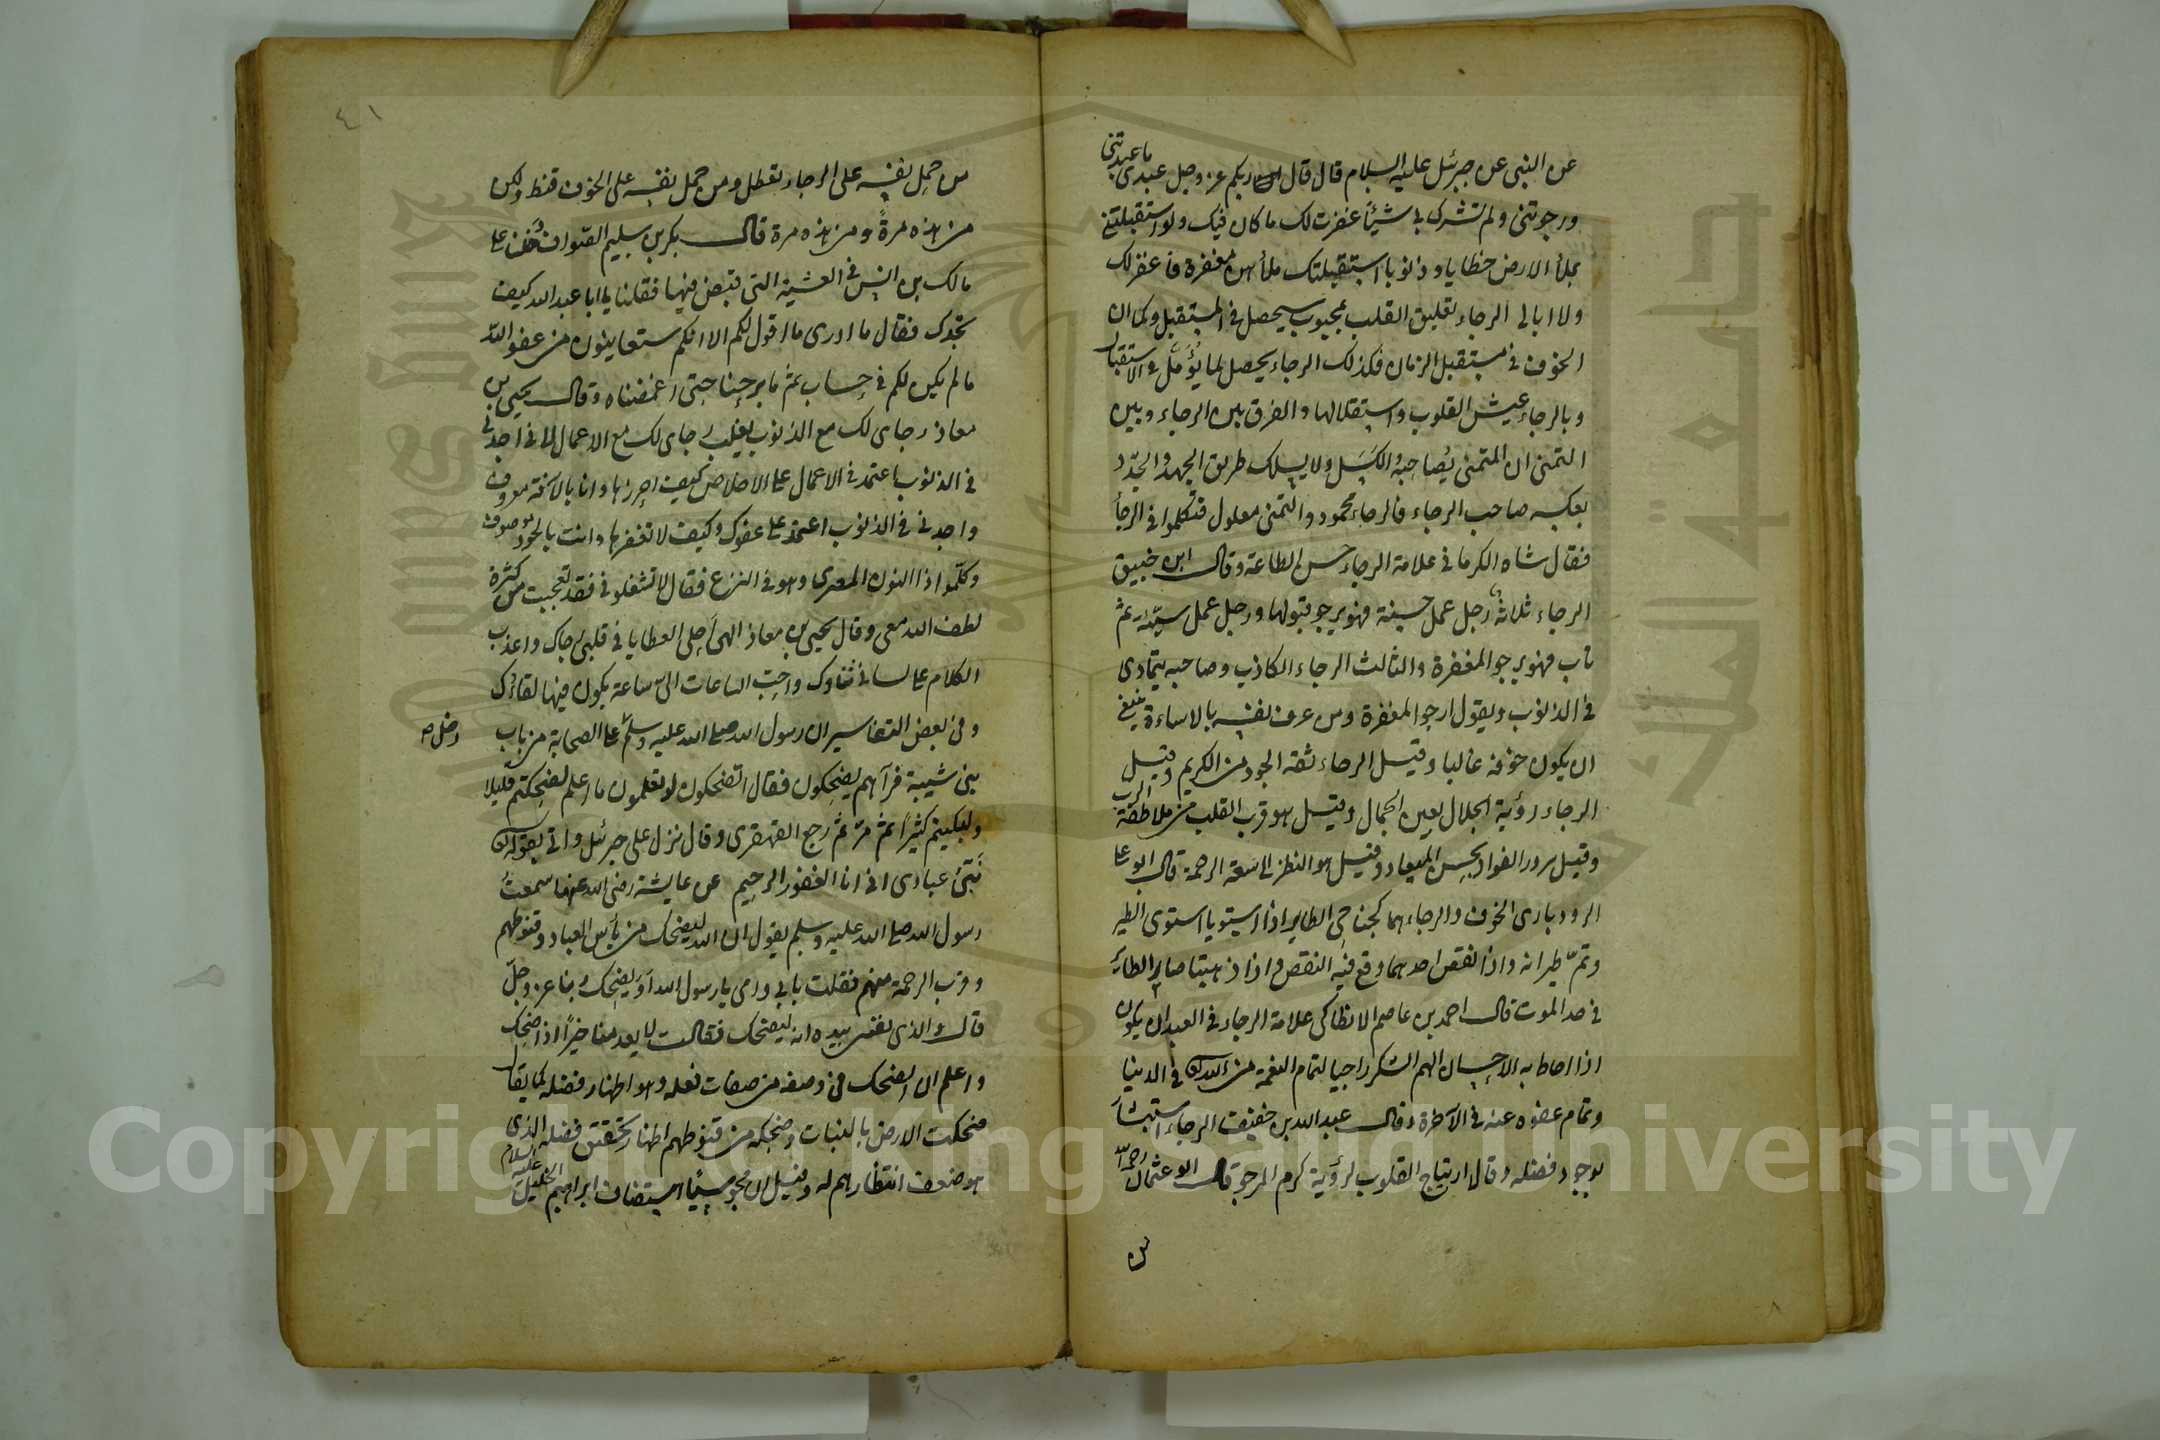 عن النبي عن جبرئيل عليه السلام قال قال ربكم عز وجل عبدى ما عبدتني
ورجوتني ولم تشرك بي شيئا غفرت لك ما كان فيك ولو استقبلتني
بملأ الارض خطايا وذنوبا استقبلتك بملأهن مغفرة فاغفر لك
ولا ابالى الرجاء تعليق القلب بمحبوب سيحصل في المستقبل وكما ان
الخوف في مستقبل الزمان فكذلك الرجاء يحصل لما يؤمل في الاستقبال
وبالرجاء عيش القلوب واستقلالها والفرق بين الرجاء وبين
التمنى ان المتمنى يصاحبه الكسل ولا يسلك طريق الجهد والجد
بعكسه صاحب الرجاء فالرجاء محمود والتمنى معلول فتكلموا في الرجأ
فقال شاه الكرمانى علامة الرجاء حسن الطاعة وقال ابن خبيق
الرجاء ثلاثة رجل عمل حسنة فهو يرجو قبولها ورجل عمل سيئة ثم
تاب فهو يرجو المغفرة والثالث الرجاء الكاذب وصاحبه يتمادى
في الذنوب ويقول ارجو المغفرة ومن عرف نفسه بالاساءة ينبغى
ان يكون خوفه غالبا وقيل الرجاء ثقة الجود من الكريم وقيل
الرجاء رؤية الجلال بعين الجمال وقيل هو قرب القلب من ملاطفة الرب
وقيل سرور الفواد بحسن الميعاد وقيل هو النظر الى سعة الرحمة قال ابو على
الرودبارى الخوف والرجاء هما كجناحى الطاير اذا استويا استوى الطير
وتم طيرانه واذا نقص احدهما وقع فيه النقص واذا ذهبتا صار الطائر
في حد الموت قال احمد بن عاصم الانطاكى علامة الرجاء في العبد ان يكون
اذا احاط به الاحسان الهم الشكر راجيا لتمام النعمة من الله في الدنيا
وتمام عفوه عنه في الآخرة وقال عبد الله بن خفيف الرجاء استبشار
بوجود فضله وقال ارتياح القلوب لرؤية كرم المرجو قال ابو عثمان رحمه الله
من
٤١
من حمل نفسه على الرجاء تعطل ومن حمل نفسه على الخوف قنط ولكن
من هذه مرة ومن هذه مرة قال بكر بن سليم الصواف دخلن على
مالك بن انس في العشية التى قبض فيها فقلنا يا ابا عبد الله كيف
تجدك فقال ما ادرى ما اقول لكم الا انكم ستعاينون من عفو الله
ما لم يكن لكم في حساب ثم ما برحنا حتى اغمضناه وقال يحيى بن
معاذ رجاى لك مع الذنوب يغلب رجاى لك مع الاعمال لانى اجدنى
في الذنوب اعتمد في الاعمال على الاخلاص كيف احرزها وانا بالآفة معروف
واجدنى في الذنوب اعتمد على عفوك وكيف لا تغفرها وانت بالجود موصوف
وكلموا ذا النون المصرى وهو في النزع فقال لا تشغلونى فقد تعجبت من كثرة
لطف الله معى وقال يحيى بن معاذ الهى احلى العطايا في قلبى رجاك واعذب
الكلام على لسانى ثناوك واحب الساعات الى ساعة يكون فيها لقاؤك
وفى بعض التفاسير ان رسول الله صلى الله عليه وسلم على الصحابة من باب
دخل صح
بنى شيبة فرآهم يضحكون فقال اتضحكون لو تعلمون ما اعلم لضحكتم قليلا
ولبكيتم كثيرا ثم مر ثم رجع القهقرى وقال نزل على جبرئيل واتى بقوله
نبئ عبادى انى انا الغفور الرحيم عن عايشة رضى الله عنها سمعت
رسول الله صلى الله عليه وسلم يقول ان الله ليضحك من يأس العباد وقنوطهم
وقرب الرحمة منهم فقلت بابى وامى يا رسول الله أو يضحك ربنا عز وجل
قال والذى نفسى بيده انه ليضحك فقالت لا يعدمنا خيرا اذا ضحك
واعلم ان الضحك في وصفه من صفات فعله وهو اظهار فضله كما يقال
ضحكت الارض بالنبات وضحكه من قنوطهم اظهار تحقيق فضله الذى
هو ضعف انتظارهم له وقيل ان مجوسيا استضاف ابراهيم الخليل عليه السلام
Copyright © King Saud University